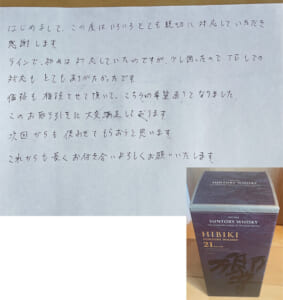 はじめまして、この度はいろいろとても親切に対応していただき
感謝します。
ラインで、初めは対応していたのですが、少し困ったのでTELしての
対応もとてもありがたかったです。
価格も相談させて頂いて、こちらの希望通りとなりました
このお取り引きに大変満足しております
次回からも使わせてもらおうと思います。
これからも長くお付き合いよろしくお願いいたします
SUNTORY WHISKY
HIBIKI
SUNTORY WHISKY
21
響